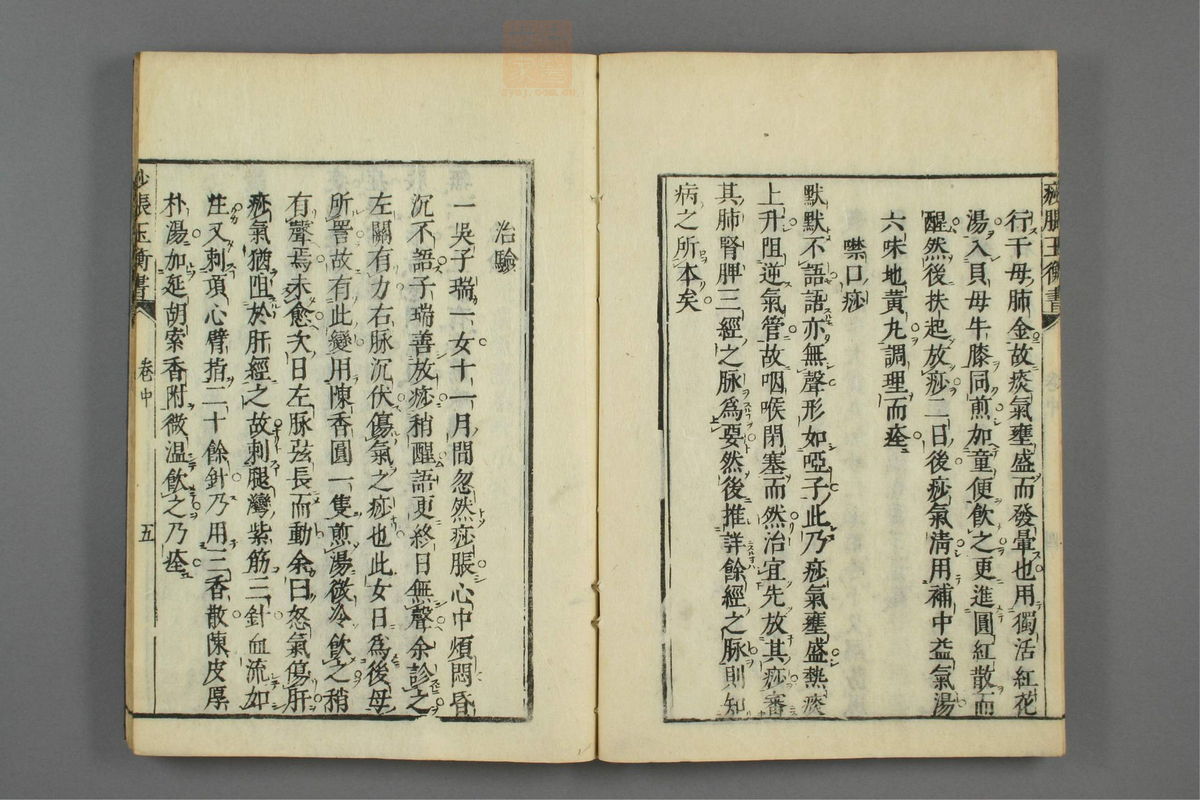 痧脹玉衡書
行干母肺金故痰氣壅盛而發暈也用獨活紅花
湯入貝母牛膝同煎加童便飲之更進圓紅散而
醒然後扶起放痧二日後痧氣清用補中益氣湯
六味地黃丸調理而痊
噤口痧
默默不語語亦無聲形如啞子此乃痧氣壅盛熱痰
上升阻逆氣管故咽喉閉塞而然治宜先放其痧審
其肺腎脾三經之脉爲要然後推詳餘經之脉則知
病之所本矣
治驗
一吳子瑞一女十一月間忽然痧脹心中煩悶昏
沉不語子瑞善放痧稍醒語更終日無聲余診之
左關有力右脉沉伏傷氣之痧也此女日爲後母
所詈故有此變用陳香圓一隻煎湯微冷飲之稍
有聲焉未愈次日左脉弦長而動余曰怒氣傷肝
痧氣猶阻於肝經之故刺腿灣紫筋三針血流如
注又刺頂心臂指二十餘針乃用三香散陳皮厚
朴湯加延胡索香附微温飲之乃痊
痧脹玉衡書 卷中 五